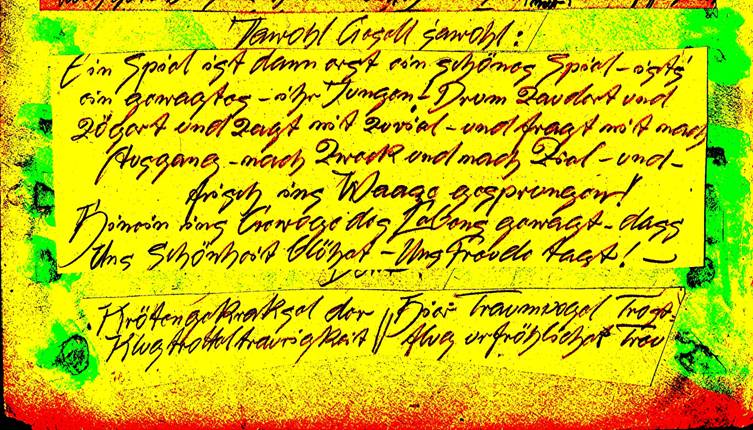 Jawohl Gesell jawohl:
Ein Spiel ist dann erst ein schönes Spiel - ists
ein gewagtes - ihr Jungen! Drum Zaudert und
Zögert und Zagt nit Zuvial - und fragt nit nach
Ausgang - nach Zweck und nach Ziel - und -
frisch ins Waage gesprungen!
Hinein ins Gewoge des Lebens gewagt - dass
Uns Schönheit blühet - Uns Freude tagt! -
Krötengekraksel der // Hier Traumvogel
Klugtrotteltraurigkeit // flug urfröhlichet